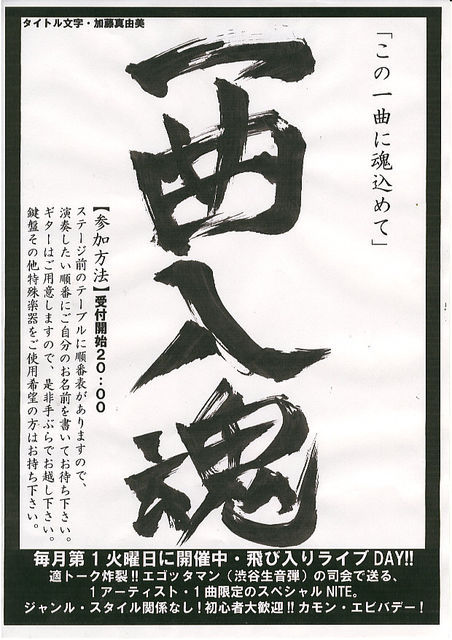 タイトル文字・加藤真由美
「この一曲に魂込めて」
一曲入魂
【参加方法】受付開始20:00
ステージ前のテーブルに順番表がありますので、
演奏したい順番にご自分のお名前を書いてお待ち下さい。
ギターはご用意しますので、是非手ぶらでお越し下さい。
鍵盤その他特殊楽器をご使用希望の方はお持ち下さい。
毎月第1火曜日に開催中・飛び入りライブDAY!!
適トーク炸裂!!エゴッタマン(渋谷生音弾)の司会で送る、
1アーティスト・1曲限定のスペシャルNITE。
ジャンル・スタイル関係なし!初心者大歓迎!!カモン・エビバデー!